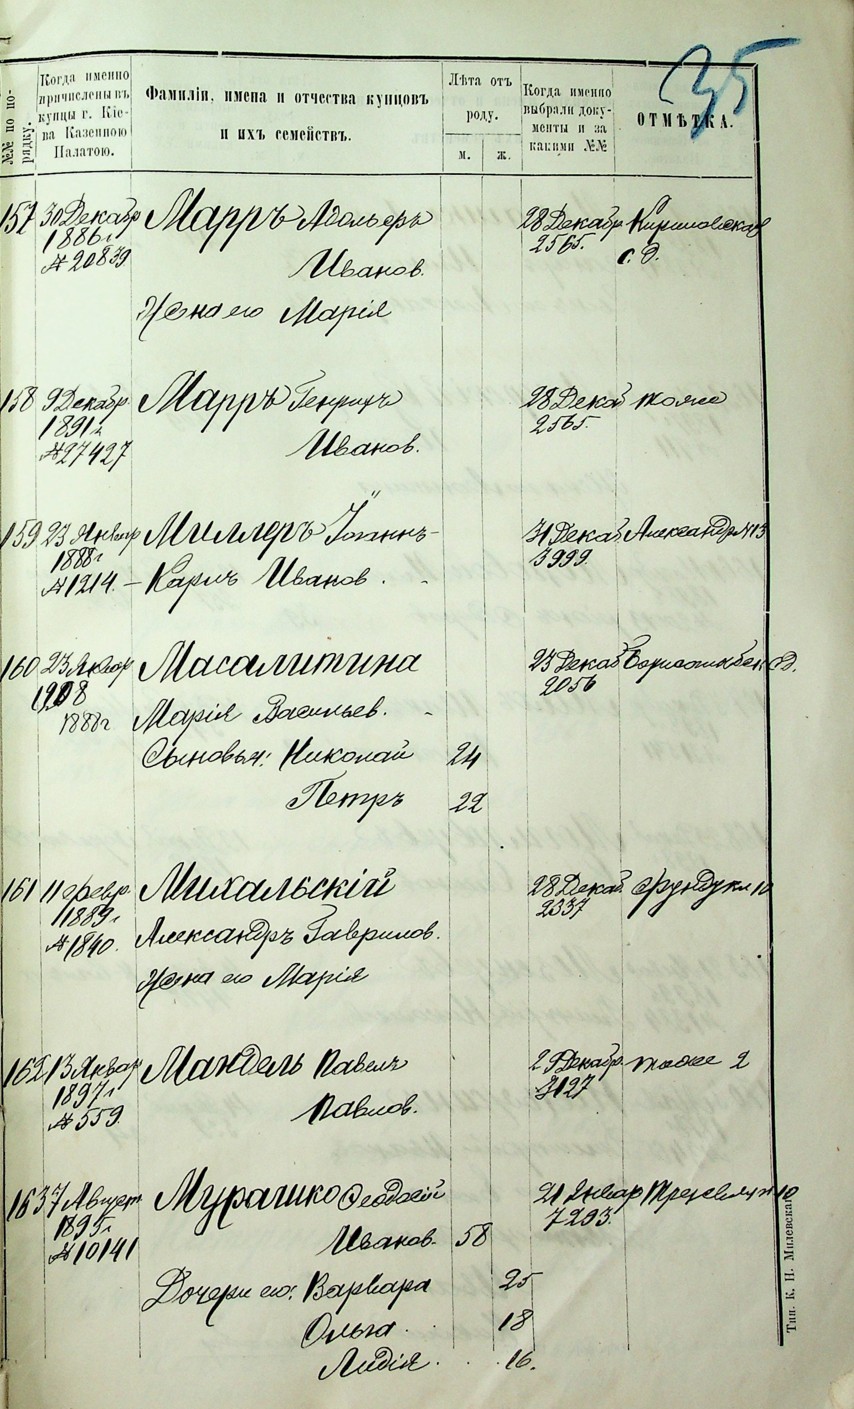 35
№№ по по-
рядку.
Когда именно
причислены въ
купцы г. Кіе-
ва Казенною
Палатою.
Фамиліи, имена и отчества купцовъ
и ихъ семействъ.
Лѣта отъ
роду.
м.
ж.
Когда именно
выбрали доку-
менты и за
какими №№
ОТМѢТКА.
157 30 Декабр Марръ Адольфъ 28 Декабр Кириловская
1886 г. Иванов. 2565. с. д.
№ 20839
Жена его Марія
158 9 Декабр. Марръ Генрихъ 28 Декаб тоже
1891 г. Иванов. 2565.
№ 27427
159 23 Январ Миллеръ Іоаннъ- 31 Декаб Александр № 13
1888 г. 3999.
№ 1214. – Карлъ Иванов.
160 23 Январ Масалитина 23 Декаб сд.
1208 2056
1888 г Марія Васильев.
Сыновья: Николай 24
Петръ 22
161 11 февр. Михальскій 28 Декаб. Фундукл 10
1889 г. 2337
№ 1840. Александръ Гаврилов.
Жена его Марія
162 13 Январ Мандель Павелъ 2 Декабр. тоже 2
1897 г. Павлов. 3127
№ 559.
163 7 Август Мурашко Феодосій 21 Январ 10
1895 г. Иванов. 58 7293.
№ 10141
Дочери его: Варвара 25
Ольга 18
Лидія 16.
Тип. К. Н. Милевскаго